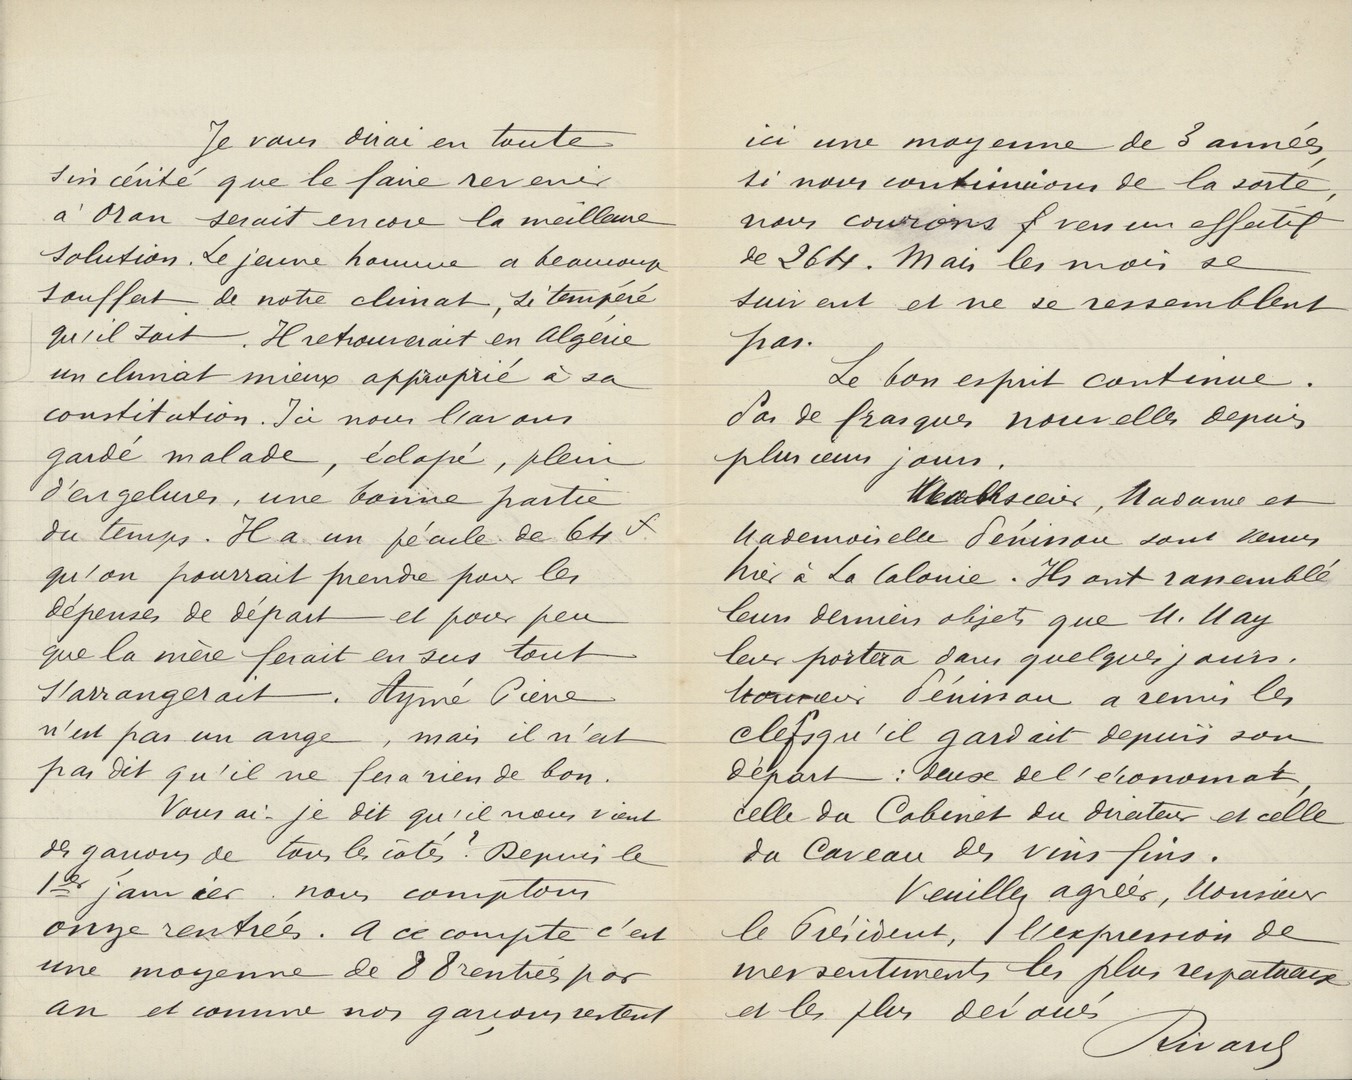 Je vous dirai en toute
sincérité que le faire revenir
à Oran serait encore la meilleure
solution. Le jeune homme a beaucoup
souffert de notre climat, si tempéré
qu'il soit. Il retrouverait en Algérie
un climat mieux approprié à sa
constitution. Ici nous l'avons
gardé malade, éclopé, plein
d'engelures, une bonne partie
du temps. Il a un pécule de 64 f
qu'on pourrait prendre pour les
dépenses de départ et pour peu
que la mère ferait en sus tout
s'arrangerait. Aymé Pierre
n'est pas un ange, mais il n'est
pas dit qu'il ne fera rien de bon.
Vous ai-je dit qu'il nous vient
des garçons de tous les côtés? Depuis le
1er janvier nous comptons
onze rentrées. A ce compte c'est
une moyenne de 88 rentrées par
an et comme nos garçons restent
ici une moyenne de 3 années,
si nous continuions de la sorte,
nous courions vers un effectif
de 264. Mais les mois se
suivent et ne se ressemblent
pas.
Le bon esprit continue.
Pas de frasques nouvelles depuis
plusieurs jours.
Monsieur, Madame et
Mademoiselle Pénissou sont venus
hier à La Colonie. Ils ont rassemblé
leurs derniers objets que M. May
leur portera dans quelques jours.
Monsieur Pénissou a remis les
clefs qu'il gardait depuis son
départ : deux de l'économat,
celle du Cabinet du directeur et celle
du Caveau des vins fins.
Veuillez agréer, Monsieur
le Président, l'expression de
mes sentiments les plus respectueux
et les plus dévoués
Rivard